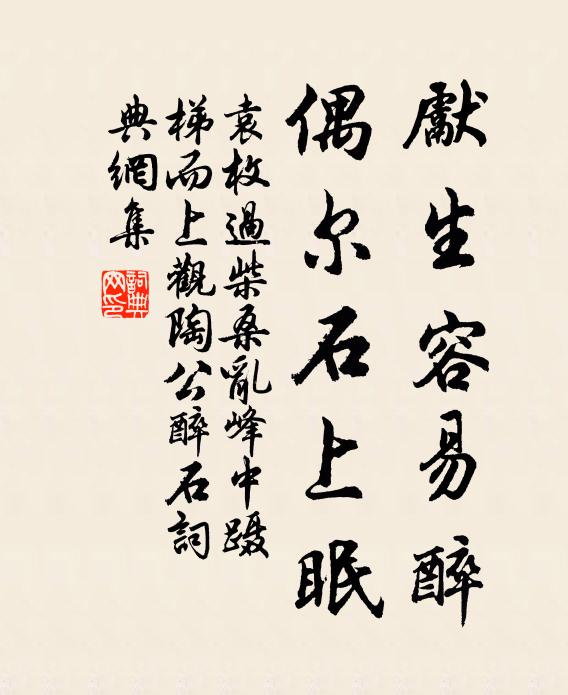 獻生容易醉
偶尔石上眠
袁枚過柴桑亂峰中躡
梯而上觀陶公醉石詞
典網集
詞典網印